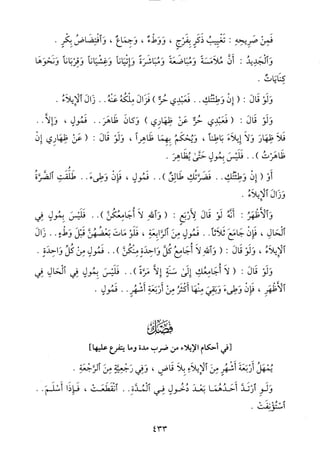 فمن صريحه : تغييب ذكر بفرج ، ووطء ، وجماع ، وافتضاض بكر .
والجديد : أن ملامسة ومباضعة ومباشرة وإتيانا وغشيانا وقربانا ونحوها
كنايات .
ولو قال : ( إن وطئتك .. فعبدي حر ) فزال ملكه عنه .. زال الإيلاء .
ولو قال : ( فعبدي حر عن ظهاري ) وكان ظاهر .. فمول ، وإلا ..
فلا ظهار ولا إيلاء باطنا ، ويحكم بهما ظاهرا ، ولو قال : ( عن ظهاري إن
ظاهرت ) .. فليس بمول حتى يظاهر .
أو ( إن وطئتك .. فضرتك طالق ) .. فمول ، فإن وطىء .. طلقت الضرة
وزال الإيلاء .
والأظهر : أنه لو قال لأربع : ( والله لا أجامعكن ) .. فليس بمول في
الحال ، فإن جامع ثلاثا .. فمول من الرابعة ، فلو مات بعضهن قبل وطء .. زال
الإيلاء ، ولو قال : ( والله لا أجامع كل واحدة منكن ) .. فمول من كل واحدة .
ولو قال : ( لا أجامعك إلى سنة إلا مرة ) .. فليس بمول في الحال في
الأظهر ، فإن وطىء وبقي منها أكثر من أربعة أشهر .. فمول .
فصل
[في أحكام الإيلاء من ضرب مدة وما يتفرع عليها]
يمهل أربعة أشهر من الإيلاء بلا قاض ، وفي رجعية من الرجعة .
ولو ارتد أحدهما بعد دخول في المدة .. انقطعت ، فإذا أسلم ..
استؤنفت .
٤٣٣